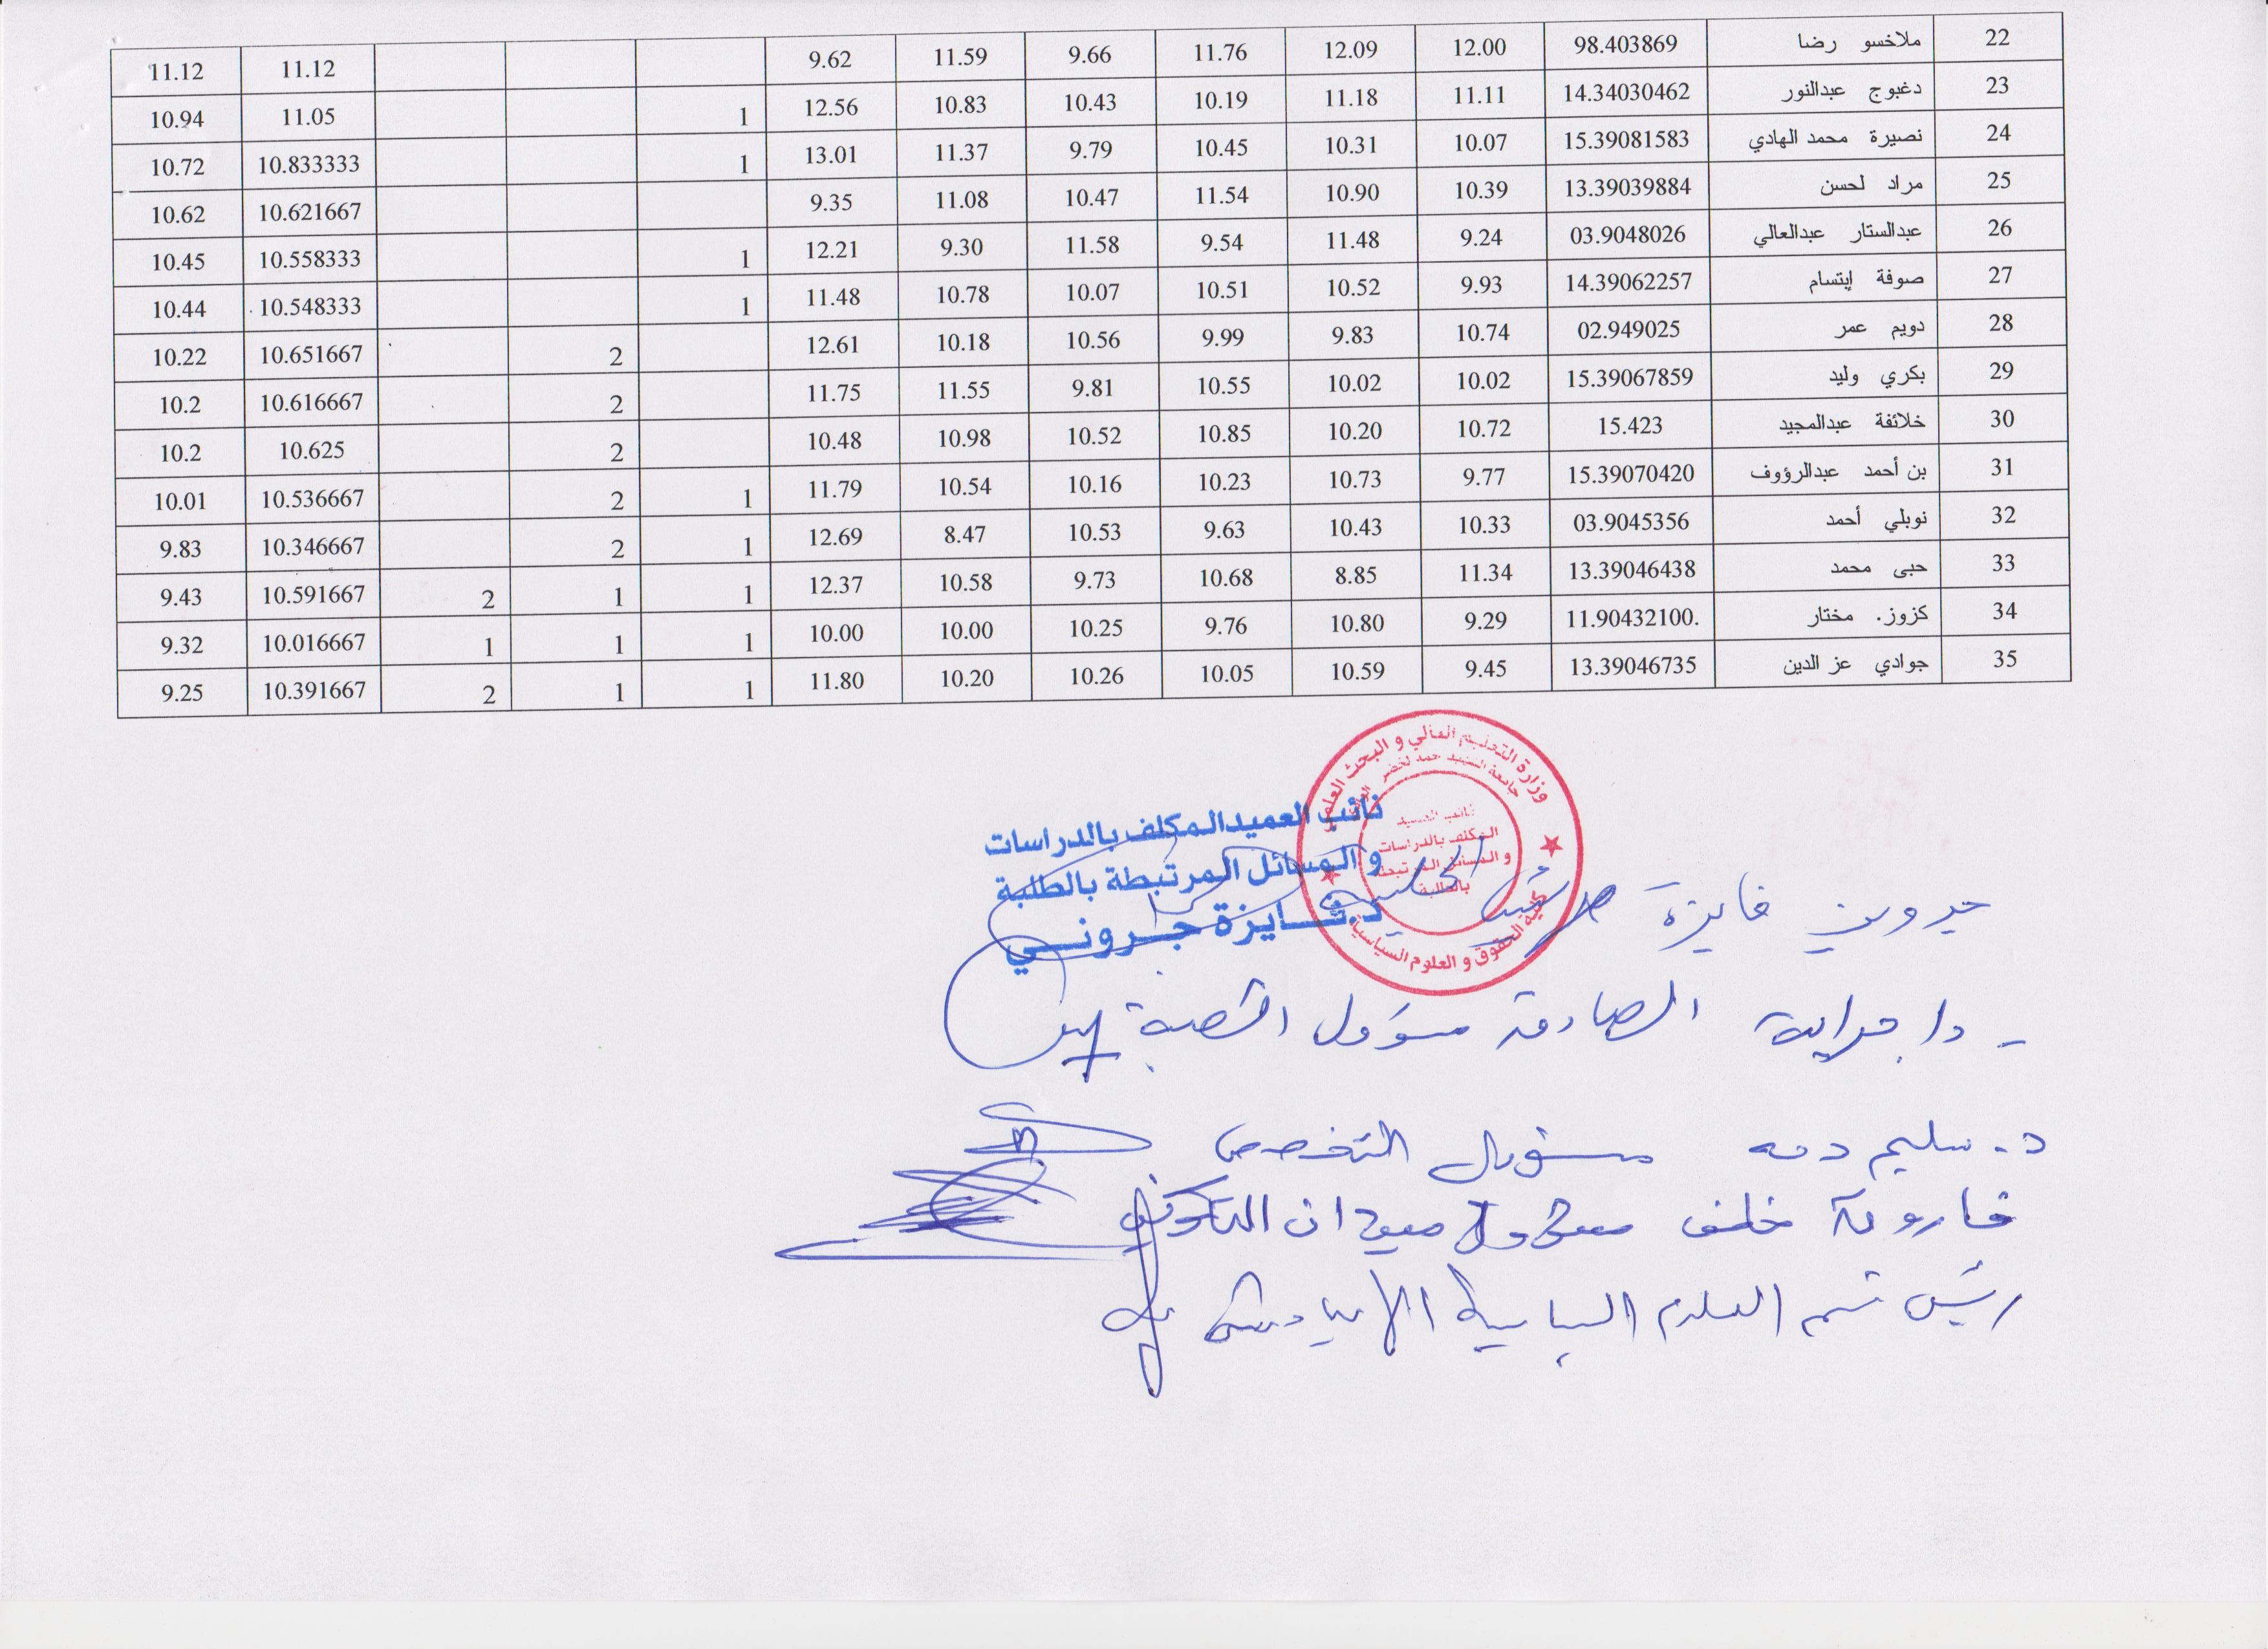 22 ملاخسو رضا 98.403869 12.00 12.09 11.76 9.66 11.59 9.62 11.12 11.12
23 دغبوج عبدالنور 14.34030462 11.11 11.18 10.19 10.43 10.83 12.56 1 11.05 10.94
24 نصيرة محمد الهادي 15.39081583 10.07 10.31 10.45 9.79 11.37 13.01 1 10.833333 10.72
25 مراد لحسن 13.39039884 10.39 10.90 11.54 10.47 11.08 9.35 10.621667 10.62
26 عبدالستار عبدالعالي 03.9048026 9.24 11.48 9.54 11.58 9.30 12.21 1 10.558333 10.45
27 صوفة إبتسام 14.39062257 9.93 10.52 10.51 10.07 10.78 11.48 1 10.548333 10.44
28 دويم عمر 02.949025 10.74 9.83 9.99 10.56 10.18 12.61 2 10.651667 10.22
29 بكري وليد 15.39067859 10.02 10.02 10.55 9.81 11.55 11.75 2 10.616667 10.2
30 خلائفة عبدالمجيد 15.423 10.72 10.20 10.85 10.52 10.98 10.48 2 10.625 10.2
31 بن أحمد عبدالرؤوف 15.39070420 9.77 10.73 10.23 10.16 10.54 11.79 1 2 10.536667 10.01
32 نوبلي أحمد 03.9045356 10.33 10.43 9.63 10.53 8.47 12.69 1 2 10.346667 9.83
33 حبى محمد 13.39046438 11.34 8.85 10.68 9.73 10.58 12.37 1 1 2 10.591667 9.43
34 كزوز. مختار 11.90432100. 9.29 10.80 9.76 10.25 10.00 10.00 1 1 1 10.016667 9.32
35 جوادي عز الدين 13.39046735 9.45 10.59 10.05 10.26 10.20 11.80 1 1 2 10.391667 9.25
وزارة التعليم العالي و البحث العلمي
كلية الحقوق و العلوم السياسية
نائب العميد
المكلف بالدراسات
و المسائل المرتبطة
بالطلبة
نائب العميد المكلف بالدراسات
و المسائل المرتبطة بالطلبة
د.فايزة جروني
جروني فايزة
الصادق مسؤول الشعبة
د. سليم دحه مسؤول التخصص
خلف مسؤول ميدان التكوين
رئيس قسم العلوم السياسية